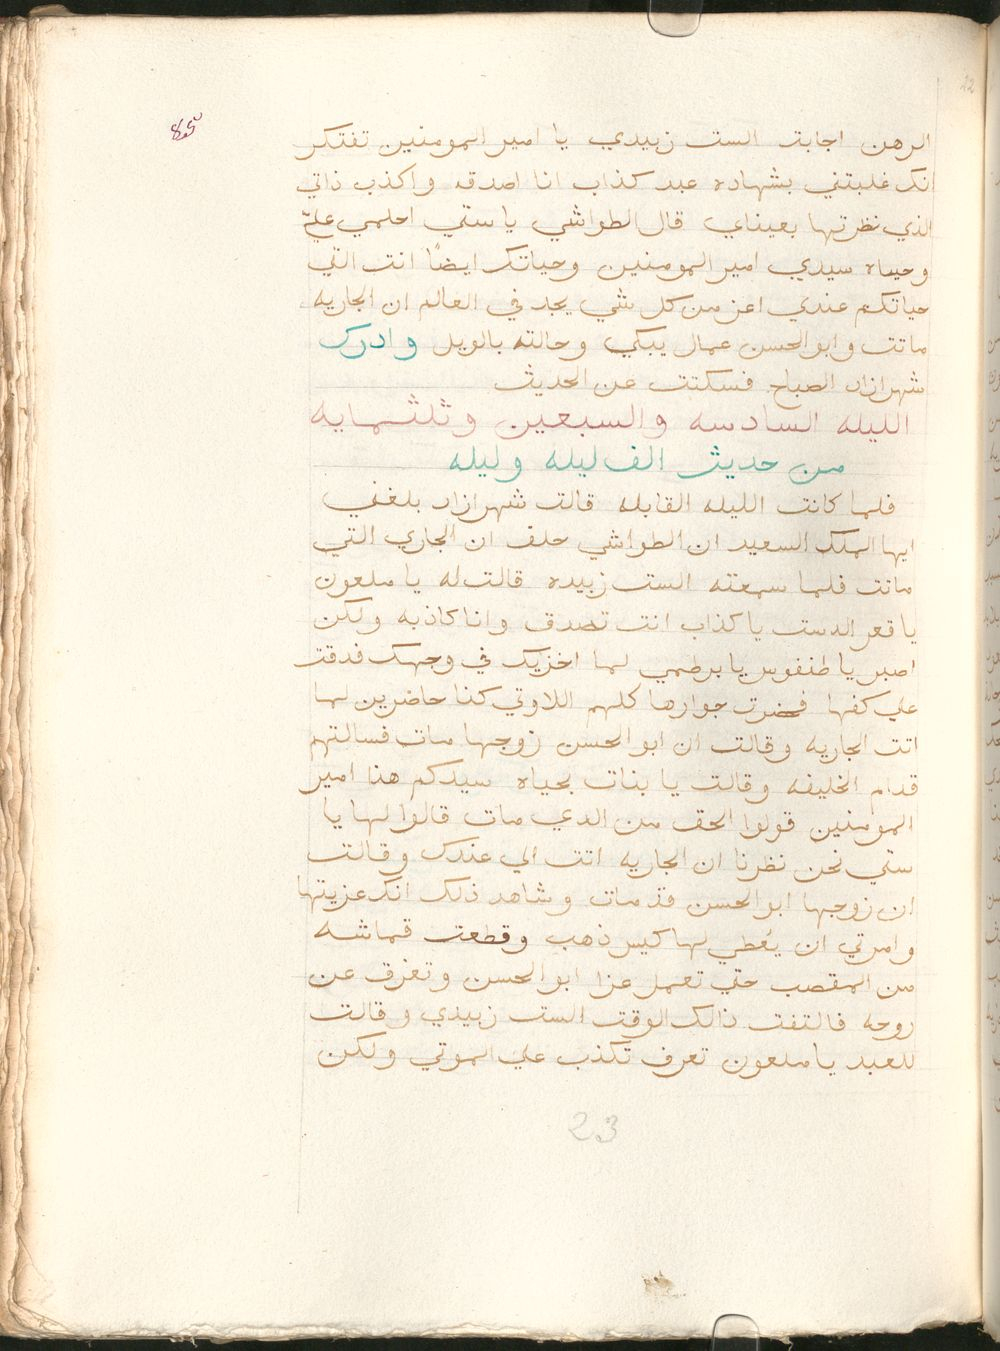 85
الرهن اجابت الست زبيدي يا امير المومنين تفتكر
انك غلبتني بشهاده عبد كذاب انا اصدقه واكذب ذاتي
الذي نظرتها بعيناي قال الطواشي يا ستي احلمي عليّ
وحياه سيدي امير المومنين وحياتك ايضًا انت التي
حياتكم عندي اعز من كل شي يجد في العالم ان الجاريه
ماتت وابو الحسن عمال يبكي وحالته بالويل وادرك
شهرازاد الصباح فسكتت عن الحديث
الليله السادسه والسبعين وثلثمايه
من حديث الف ليله وليله
فلما كانت الليله القابله قالت شهرازاد بلغني
ايها الملك السعيد ان الطواشي حلف ان الجاري التي
ماتت فلما سمعته الست زبيده قالت له يا ملعون
يا قعر الدست يا كذاب انت تصدق وانا كاذبه ولكن
اصبر يا طنفوس يا برطمي لما اخزيك في وجهك فدقت
علي كفها فحضرت جوارها كلهم اللاوتي كنا حاضرين لما
اتت الجاريه وقالت ان ابو الحسن زوجها مات فسالتهم
قدام الخليفه وقالت يا بنات بحياه سيدكم هنا امير
المومنين قولوا الحق من الدي مات قالوا لها يا
ستي نحن نظرنا ان الجاريه اتت الي عندك وقالت
ان زوجها ابو الحسن قد مات وشاهد ذلك انك عزيتها
وامرتي ان يُعطي لها كيس ذهب وقطعت قماشه
من المقصب حتي تعمل عزا ابو الحسن وتفرق عن
روحه فالتفت ذالك الوقت الست زبيدي وقالت
للعبد يا ملعون تعرف تكذب علي الموتي ولكن
23